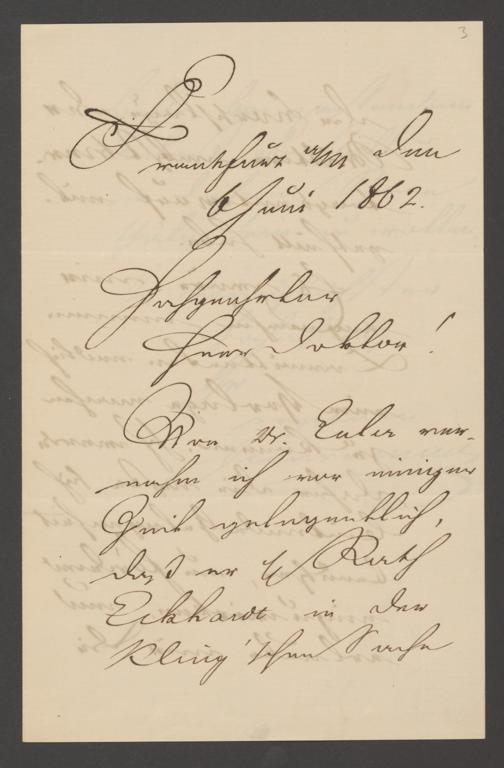 3
Frankfurt a/M den
6 Juni 1862.
Hochgeehrter
Herr Doktor!
Von Dr. Euler ver-
nahm ich vor einiger
Zeit gelegentlich,
daß er H Rath
Eckhardt in der
Kling'schen Sache